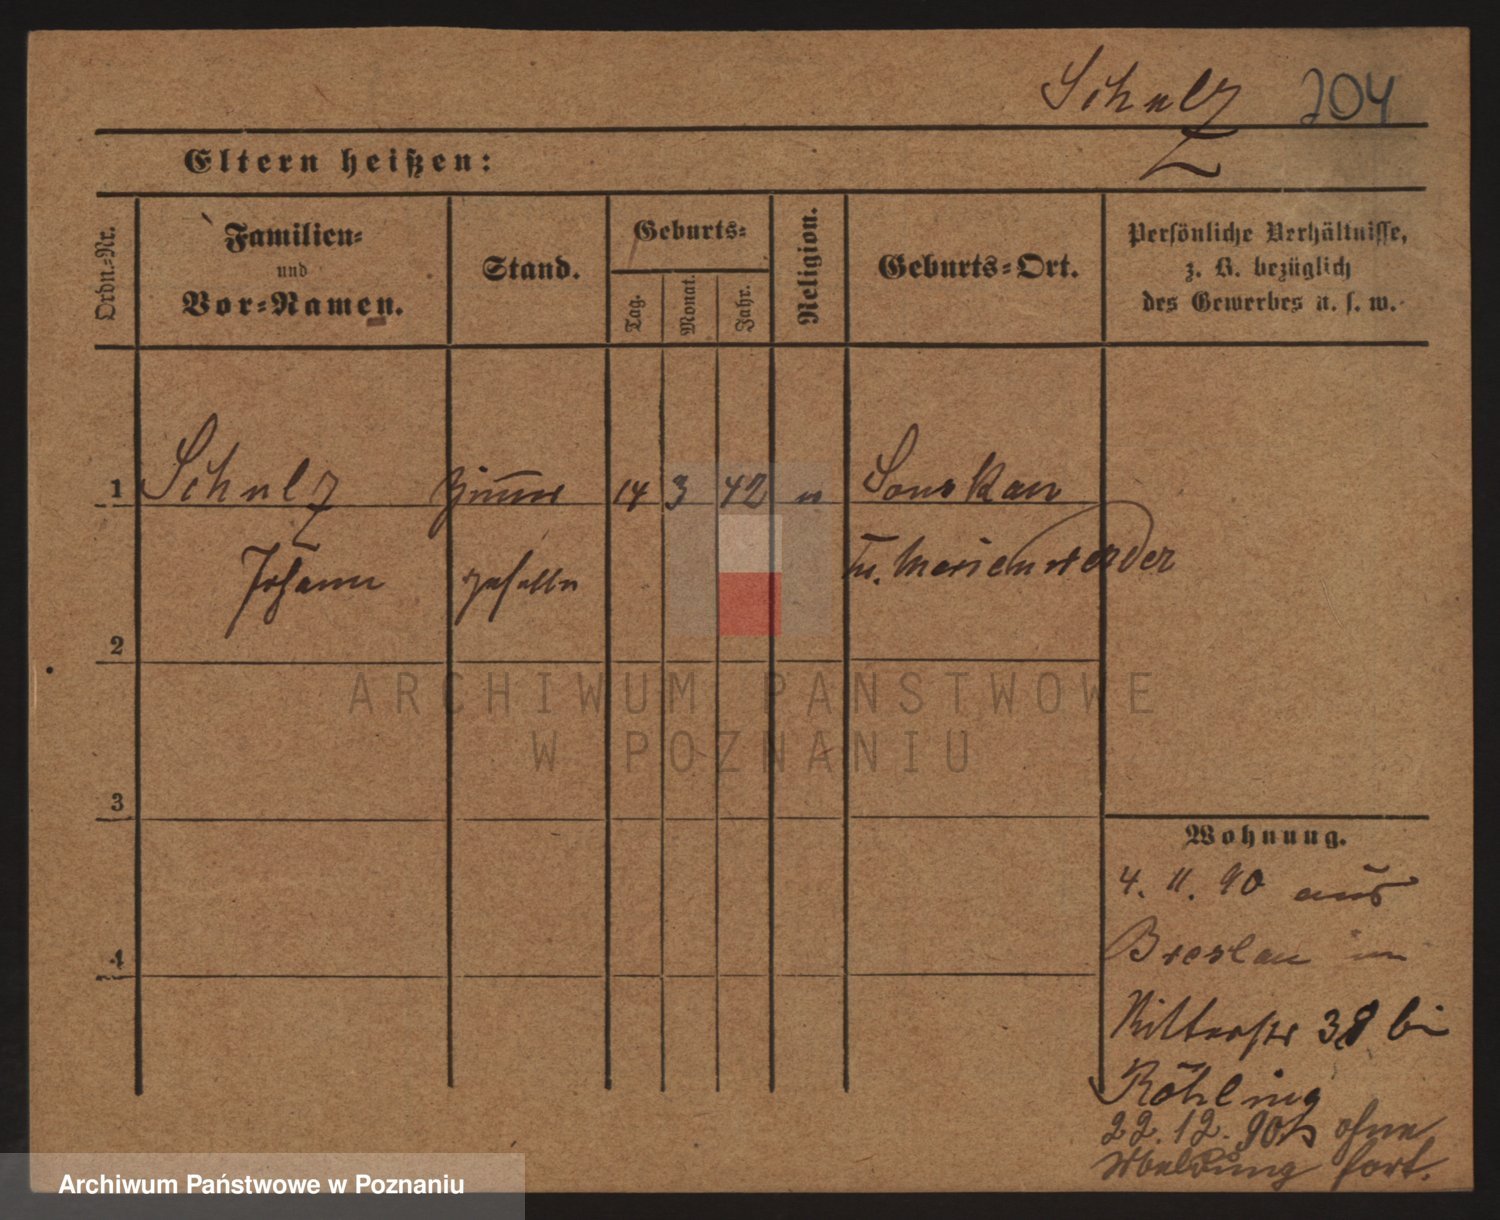 Schulz 204
Eltern heißen:
Ordn.-Nr.
Familien-
und
Vor-Namen.
Stand.
Geburts-
Tag.
Monat.
Jahr.
Religion.
Geburts-Ort.
Persönliche Verhältnisse,
z. B. bezüglich
des Gewerbes u. s. w.
1 Schulz Zimmer 14 3 42
Johann geselle Marienwerder
2
ARCHIWUM PAŃSTWOWE
W POZNANIU
3
Wohnung.
4. 11. 90 aus
Breslau in
4
Ritterstr 38 bei
Röhling
22. 12. 90 ohne
Meldung fort.
Archiwum Państwowe w Poznaniu